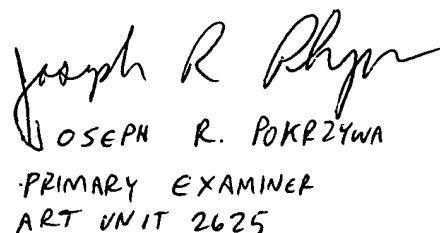 Joseph R Pkyn
JOSEPH R. POKRZYWA
PRIMARY EXAMINER
ART UNIT 2625